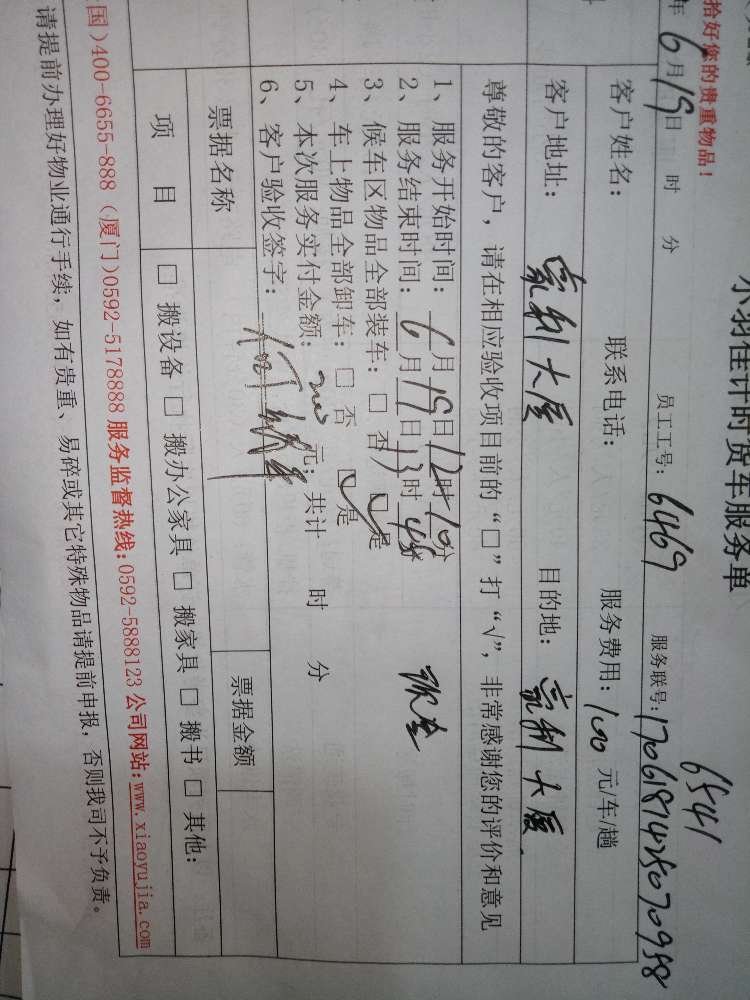 小羽佳计时货车服务单
6541
拾好您的贵重物品!
年 6月19日 时 分 员工工号: 6469 服务联号: 1706181425070958
客户姓名: 联系电话: 服务费用: 100 元/车/趟
客户地址: 豪利大厦 目的地: 豪利大厦
尊敬的客户,请在相应验收项目前的“□”打“√”,非常感谢您的评价和意见
1、服务开始时间: 6月19日12时10分
2、服务结束时间: 6月19日13时45
3、候车区物品全部装车: □ 否 ☑ 是
4、车上物品全部卸车: □ 否 ☑ 是
5、本次服务实付金额: 200 元; 共计 时 分
6、客户验收签字:
票据名称 票据金额
项 目 □ 搬设备 □ 搬办公家具 □ 搬家具 □ 搬书 □ 其他:
国)400-6655-888 (厦门)0592-5178888 服务监督热线:0592-5888123 公司网站:www.xiaoyujia.com
请提前办理好物业通行手续,如有贵重、易碎或其它特殊物品请提前申报,否则我司不予负责。